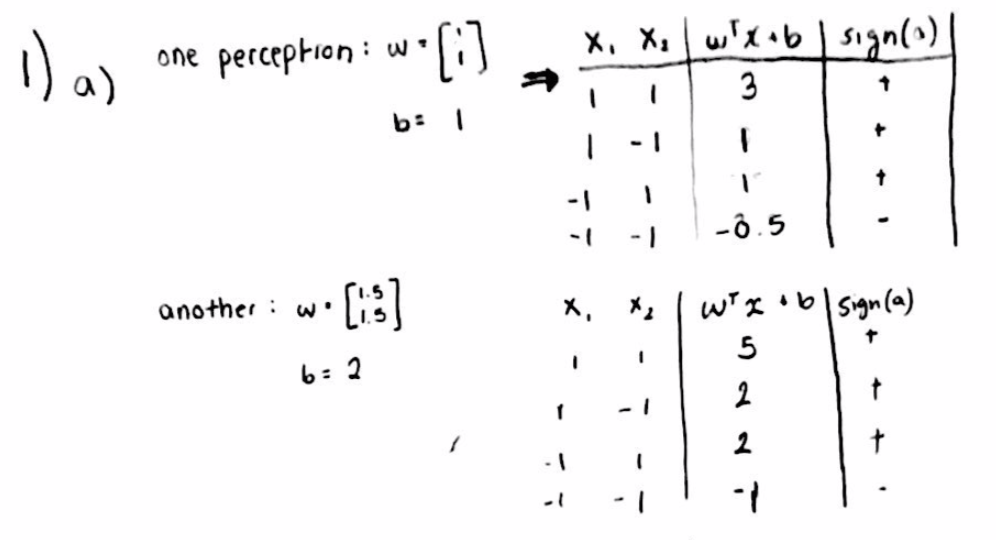 1) a) one perception : w = [1 1] ⇒ x₁ x₂ | wᵀx + b | sign(a)
b = 1
1 1 | 3 | +
1 -1 | 1 | +
-1 1 | 1 | +
-1 -1 | -0.5 | -
another : w = [1.5 1.5] x₁ x₂ | wᵀx + b | sign(a)
b = 2
1 1 | 5 | +
1 -1 | 2 | +
-1 1 | 2 | +
-1 -1 | -1 | -